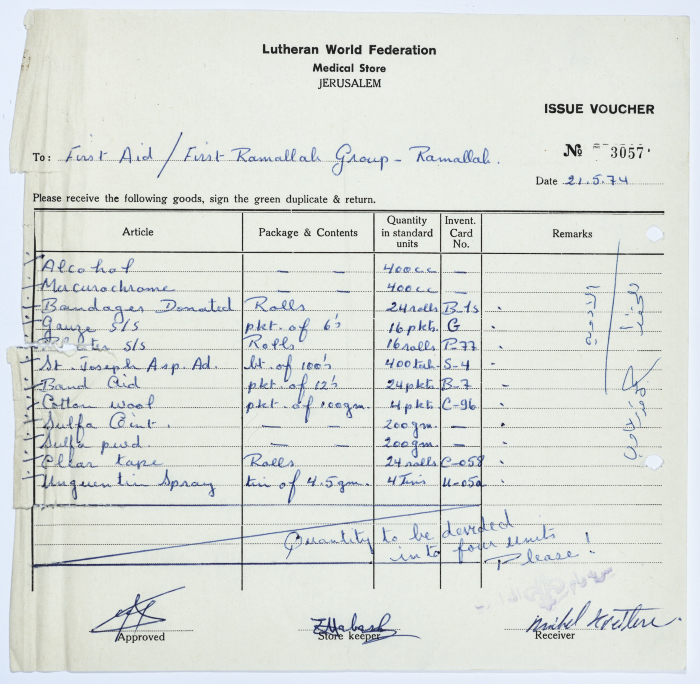 Lutheran World Federation
Medical Store
JERUSALEM
ISSUE VOUCHER
To: First Aid / First Ramallah Group - Ramallah.
No 3057
Date 21.5.74
Please receive the following goods, sign the green duplicate & return.
Article Package & Contents Quantity in standard units Invent. Card No. Remarks
Alcohol — — 400cc —
Mercurochrome — — 400cc —
Bandages Donated Rolls 24 rolls B-1s
Gauze S/S pkt. of 6's 16 pkts. G
S/S Rolls 16 rolls P-77
St. Joseph Asp. Ad. bt. of 100's 400 tab. S-4
Band Aid pkt of 12's 24 pkts B-7
Cotton wool pkt. of 100gm. 4 pkts. C-96
Sulfa Oint. — — 200gm. —
Sulfa pwd. — — 200gm. —
tape Rolls 24 rolls C-058
Unguentin Spray tin of 4.5 gm. 4 Tins U-05a
Quantity to be devided
into four units
Please!
Approved Store keeper Receiver